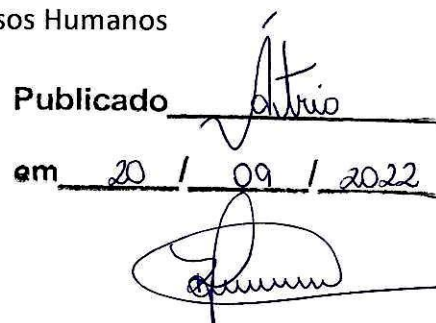 sos Humanos
Publicado Átrio
em 20 / 09 / 2022